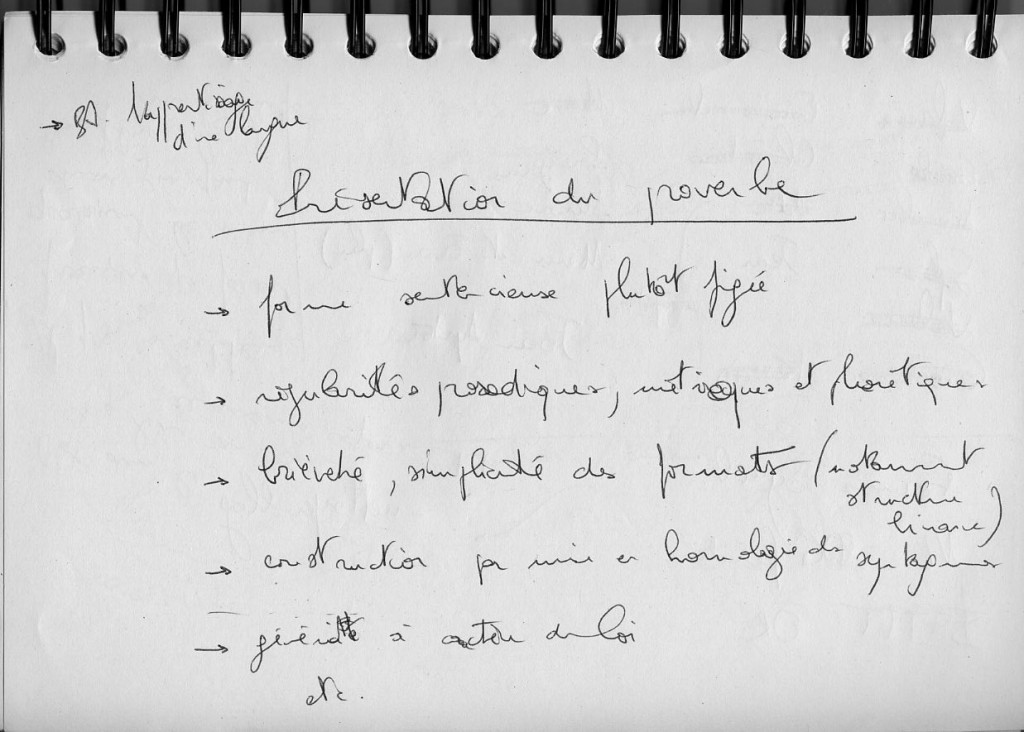 → l'apprentissage
d'une langue
Présentation du proverbe
→ forme sentencieuse plutôt figée
→ régularités prosodiques, métriques et phonétiques
→ brièveté, simplicité des formats (notamment
structure
binaire)
→ construction par mise en homologie de syntagmes
→ généralité à caractère de loi
etc.